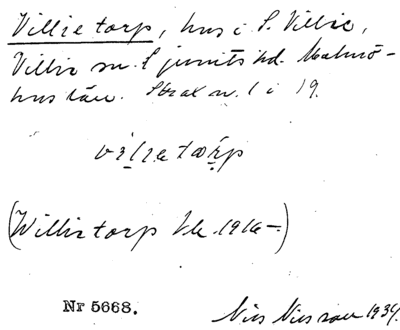 Villie torp, hus i S. Villie,
Villie sn. Ljunits hd. Malmö-
hus län. Strax n. 1 i 19.
vilie tɷrp
(Willietorp Jb. 1916–)
Nr 5668.
Nils Nilsson 1934.